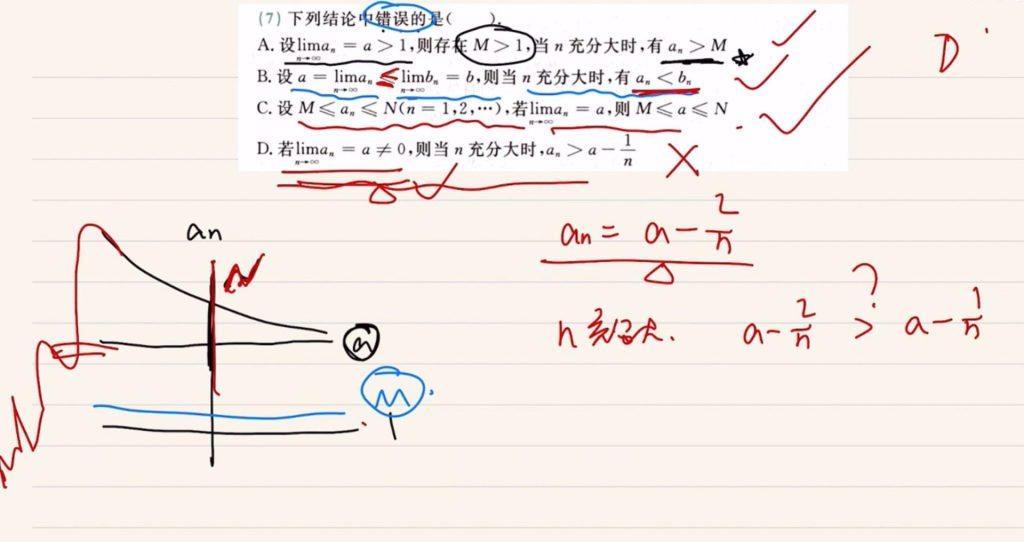 (7) 下列结论中错误的是(　　).
A. 设lim aₙ = a > 1,则存在 M > 1,当 n 充分大时,有 aₙ > M
n→∞
B. 设 a = lim aₙ ≤ lim bₙ = b,则当 n 充分大时,有 aₙ < bₙ
n→∞ n→∞
C. 设 M ⩽ aₙ ⩽ N(n = 1,2,⋯),若lim aₙ = a,则 M ⩽ a ⩽ N
n→∞
D. 若lim aₙ = a ≠ 0,则当 n 充分大时,aₙ > a − 1/n
n→∞
D
an
N
a
M
1
an = a − 2/n
a − 2/n > a − 1/n
?